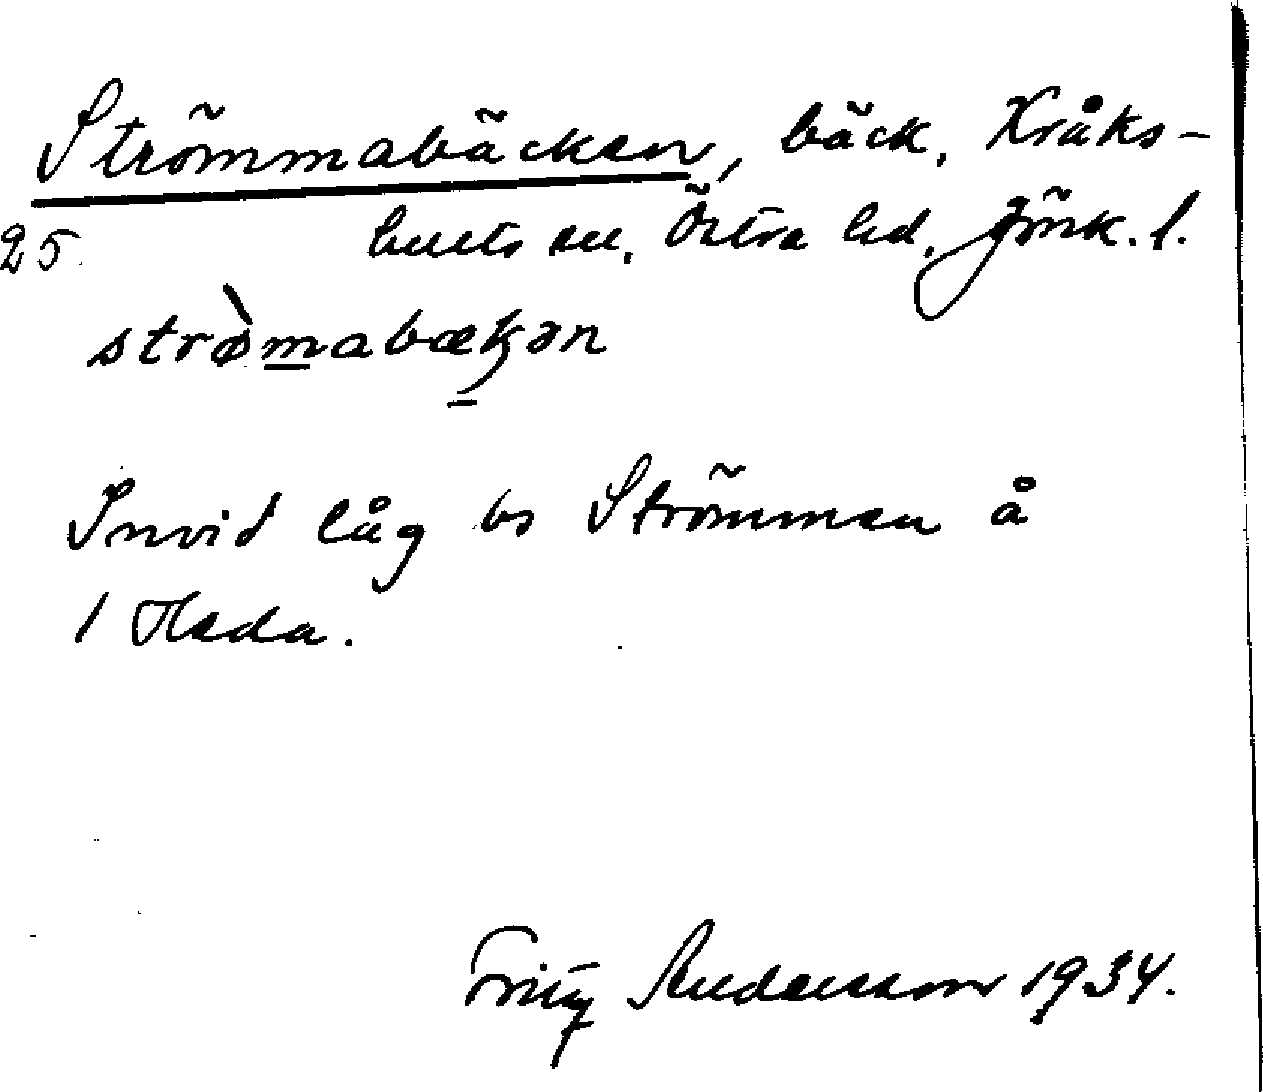 Strömmabäcken, bäck, Kråks-
25. hults sn, Östra hd, Jönk. l.
strømabæꞣən
Invid låg bs Strömmen å
1 Heda.
Fritz Andersson 1934.